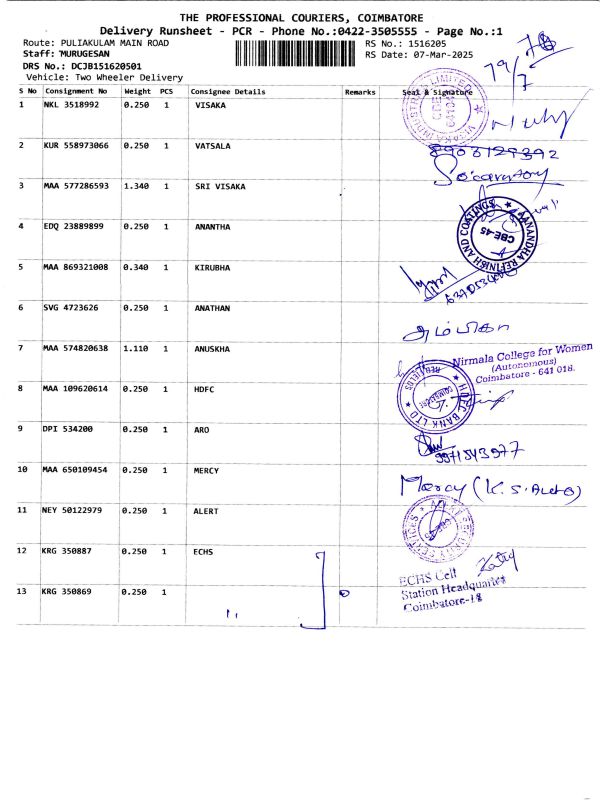 THE PROFESSIONAL COURIERS, COIMBATORE
Delivery Runsheet - PCR - Phone No.:0422-3505555 - Page No.:1
Route: PULIAKULAM MAIN ROAD
RS No.: 1516205
Staff: MURUGESAN
RS Date: 07-Mar-2025
DRS No.: DCJB151620501
Vehicle: Two Wheeler Delivery
79/7
S No Consignment No Weight PCS Consignee Details Remarks Seal & Signature
1 NKL 3518992 0.250 1 VISAKA
2 KUR 558973066 0.250 1 VATSALA 8903129392
3 MAA 577286593 1.340 1 SRI VISAKA
4 EDQ 23889899 0.250 1 ANANTHA
ANANDHA REFINISH AND COATINGS
CBE-45
5 MAA 869321008 0.340 1 KIRUBHA
6 SVG 4723626 0.250 1 ANATHAN அம்பிகா
7 MAA 574820638 1.110 1 ANUSKHA Nirmala College for Women
(Autonomous)
Coimbatore - 641 018.
8 MAA 109620614 0.250 1 HDFC
HDFC BANK LTD
RED FIELDS
COIMBATORE
9 DPI 534200 0.250 1 ARO
9971543977
10 MAA 650109454 0.250 1 MERCY Mercy (K.S. Auto)
11 NEY 50122979 0.250 1 ALERT
ALERT SECURITY SERVICES
CBE-45
12 KRG 350887 0.250 1 ECHS
ECHS Cell
Station Headquarter
Coimbatore-18
13 KRG 350869 0.250 1